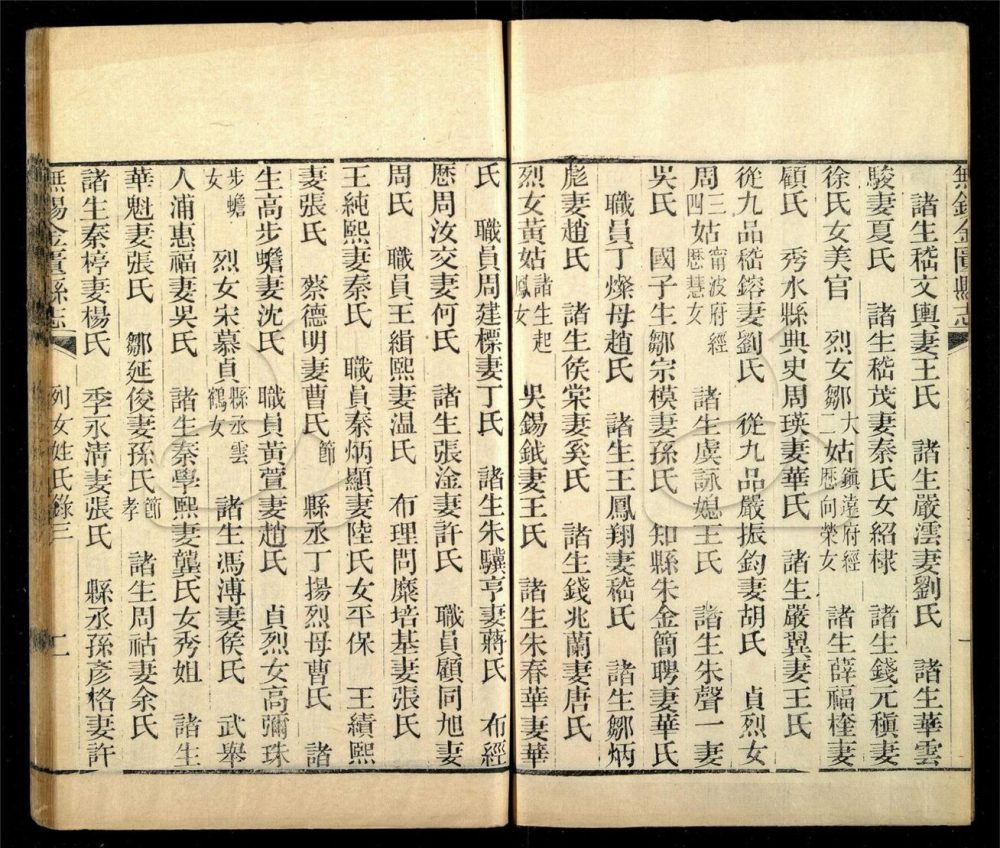 無錫金匱縣志
諸生嵇文輿妻王氏　諸生嚴澐妻劉氏　諸生華雲
駿妻夏氏　諸生嵇茂妻秦氏女紹棣　諸生錢元稹妻
徐氏女美官　烈女鄒大姑鎮遠府經二姑歷向榮女　諸生薛福楏妻
顧氏　秀水縣典史周瑛妻華氏　諸生嚴翼妻王氏
從九品嵇鎔妻劉氏　從九品嚴振鈞妻胡氏　貞烈女
周三姑甯波府經四姑歷慧女　諸生虞詠媳王氏　諸生朱聲一妻
吳氏　國子生鄒宗模妻孫氏　知縣朱金簡聘妻華氏
職員丁燦母趙氏　諸生王鳳翔妻嵇氏　諸生鄒炳
彪妻趙氏　諸生侯棠妻奚氏　諸生錢兆蘭妻唐氏
烈女黃姑諸生起鳳女　吳錫鉞妻王氏　諸生朱春華妻華
氏　職員周建標妻丁氏　諸生朱驥亨妻蔣氏　布經
歷周汝交妻何氏　諸生張淦妻許氏　職員顧同旭妻
周氏　職員王緝熙妻溫氏　布理問糜培基妻張氏
王純熙妻秦氏　職員秦炳顯妻陸氏女平保　王績熙
妻張氏　蔡德明妻曹氏節　縣丞丁揚烈母曹氏　諸
生高步蟾妻沈氏　職員黃萱妻趙氏　貞烈女高彌珠
步蟾女　烈女宋慕貞縣丞雲鶴女　諸生馮溥妻侯氏　武舉
人浦惠福妻吳氏　諸生秦學熙妻龔氏女秀姐　諸生
華魁妻張氏　鄒延俊妻孫氏節孝　諸生周祜妻余氏
諸生秦楟妻楊氏　季永清妻張氏　縣丞孫彥格妻許
無錫金匱縣志　列女姓氏錄三